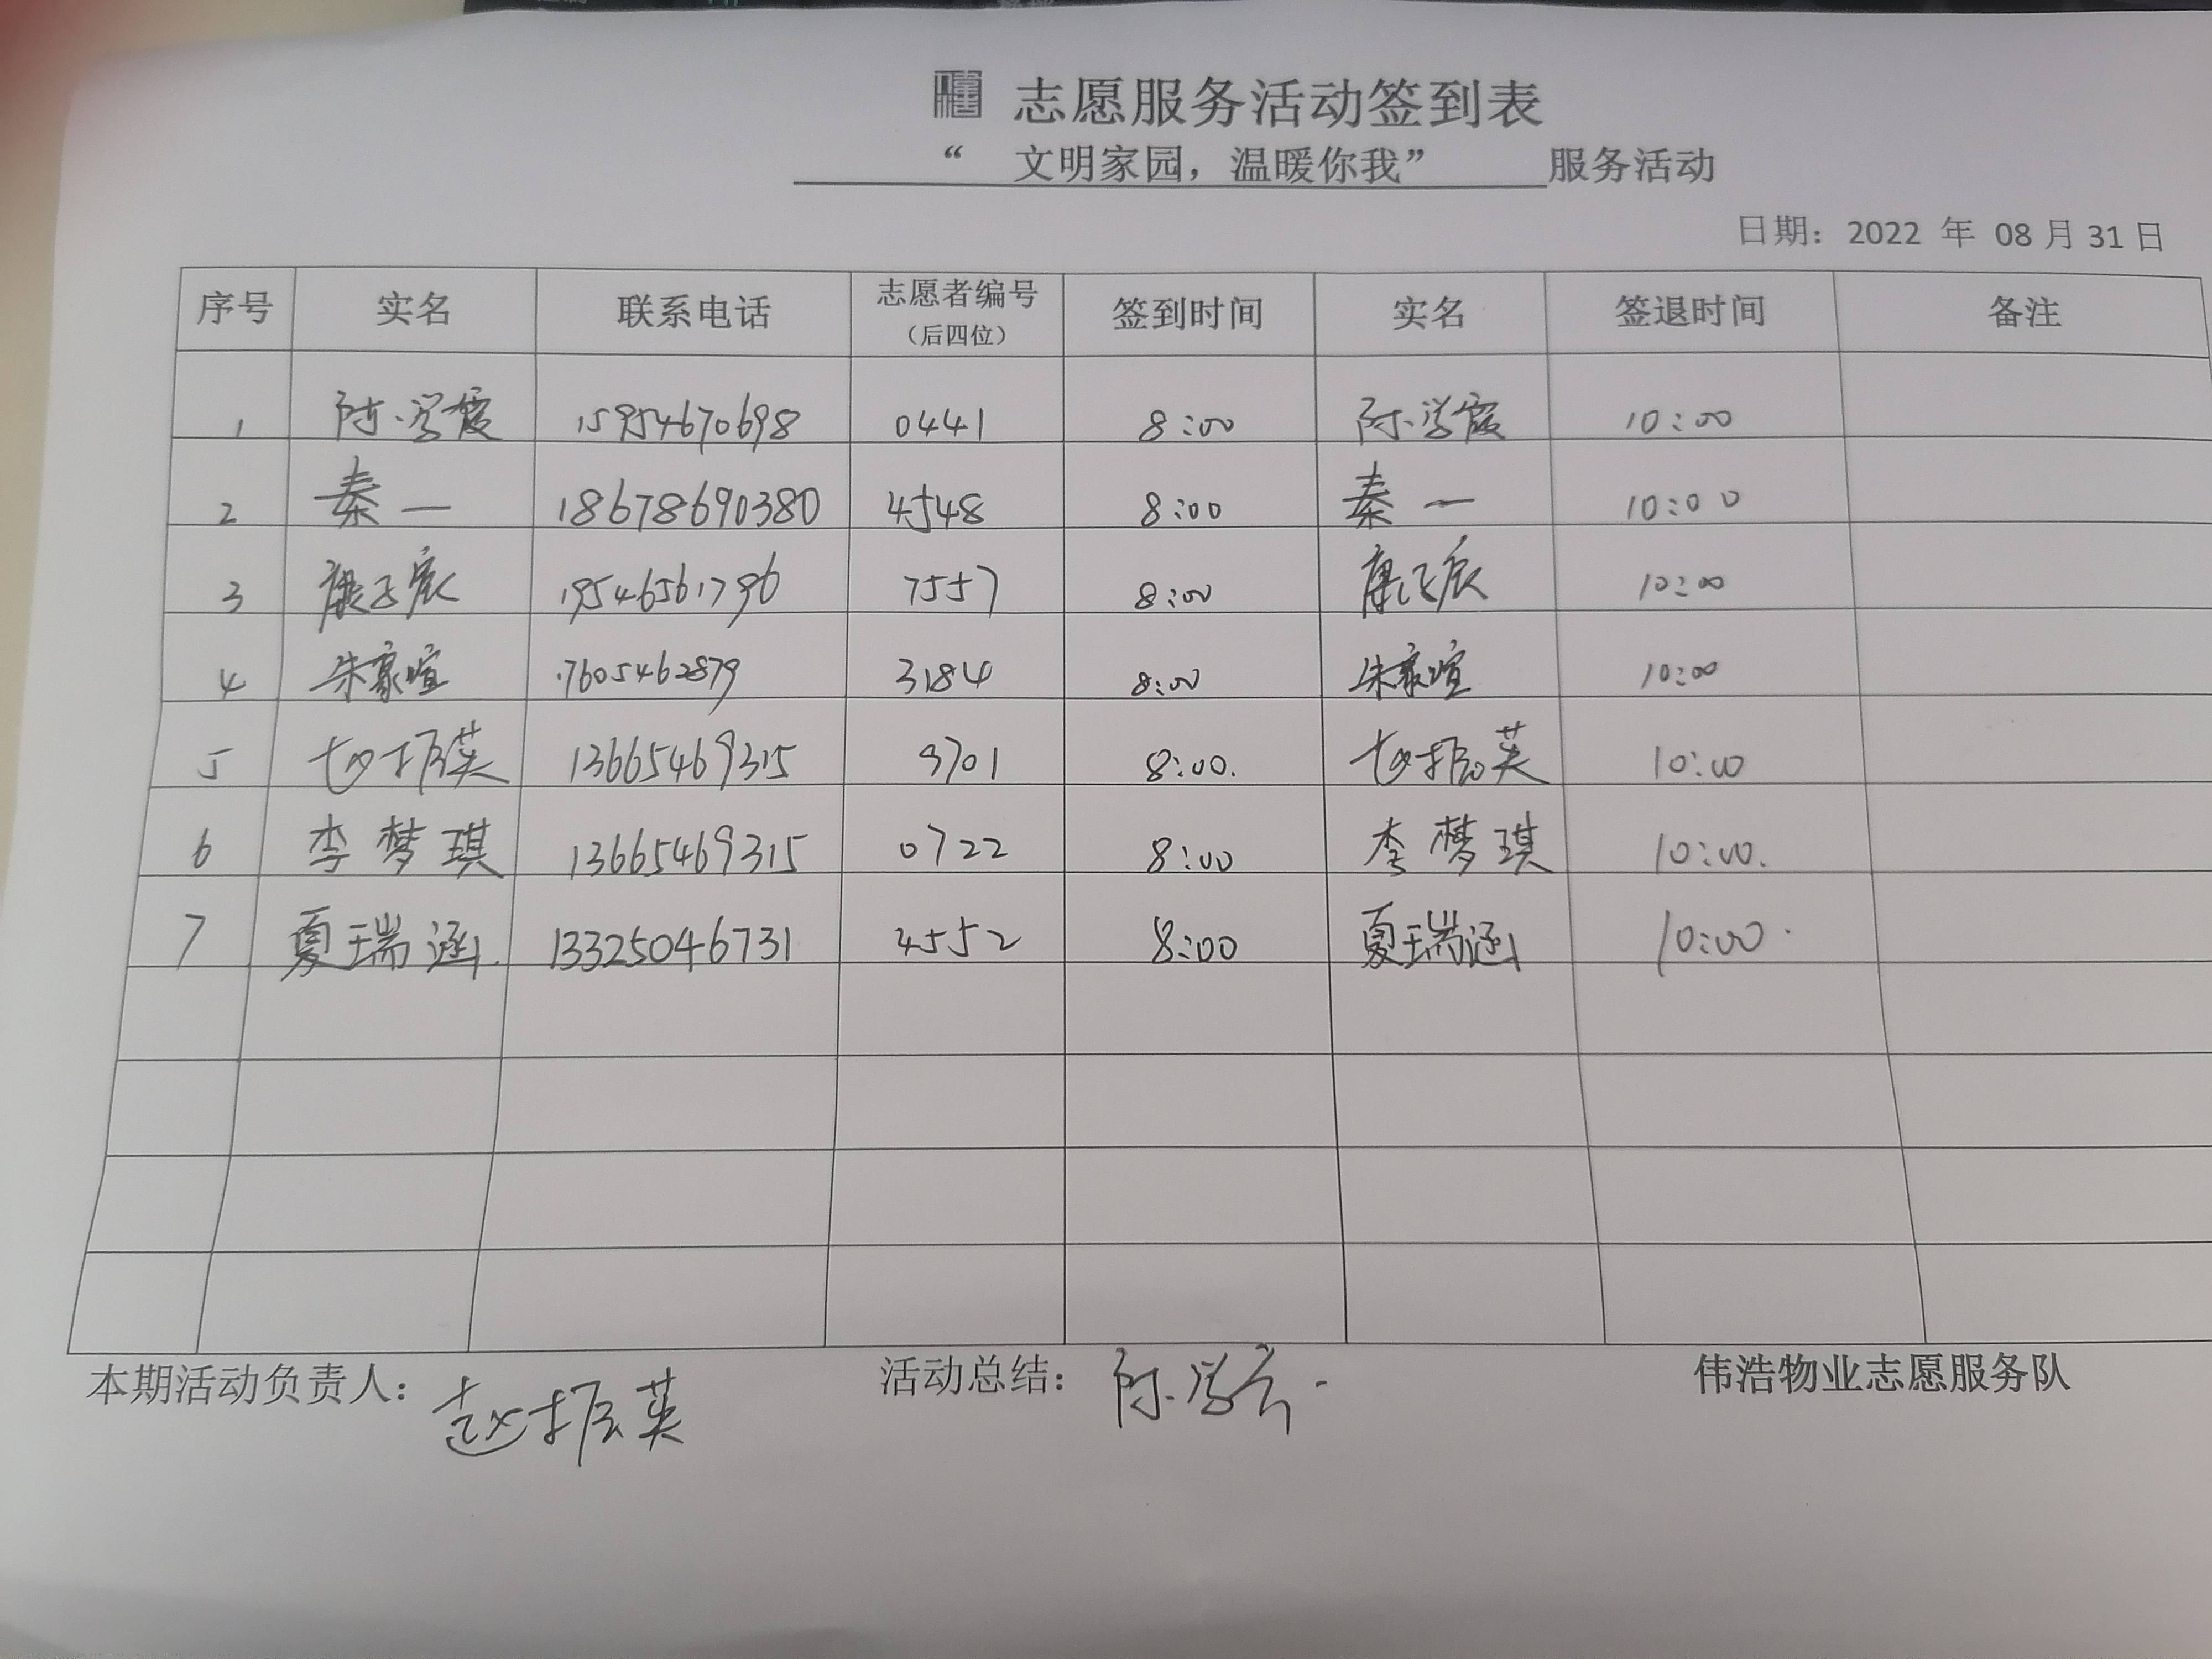 志愿服务活动签到表
“ 文明家园，温暖你我” 服务活动
日期：2022 年 08 月 31 日
序号 实名 联系电话 志愿者编号（后四位） 签到时间 实名 签退时间 备注
1 陈学霞 15954670698 0441 8:00 陈学霞 10:00
2 秦一 18678690380 4548 8:00 秦一 10:00
3 康子宸 7557 8:00 康子宸 10:00
4 朱家暄 17605462879 3184 8:00 朱家暄 10:00
5 赵振英 13665469315 3701 8:00. 赵振英 10:00
6 李梦琪 13665469315 0722 8:00 李梦琪 10:00.
7 夏瑞涵. 13325046731 4552 8:00 夏瑞涵 10:00.
本期活动负责人：赵振英 活动总结：陈学 伟浩物业志愿服务队